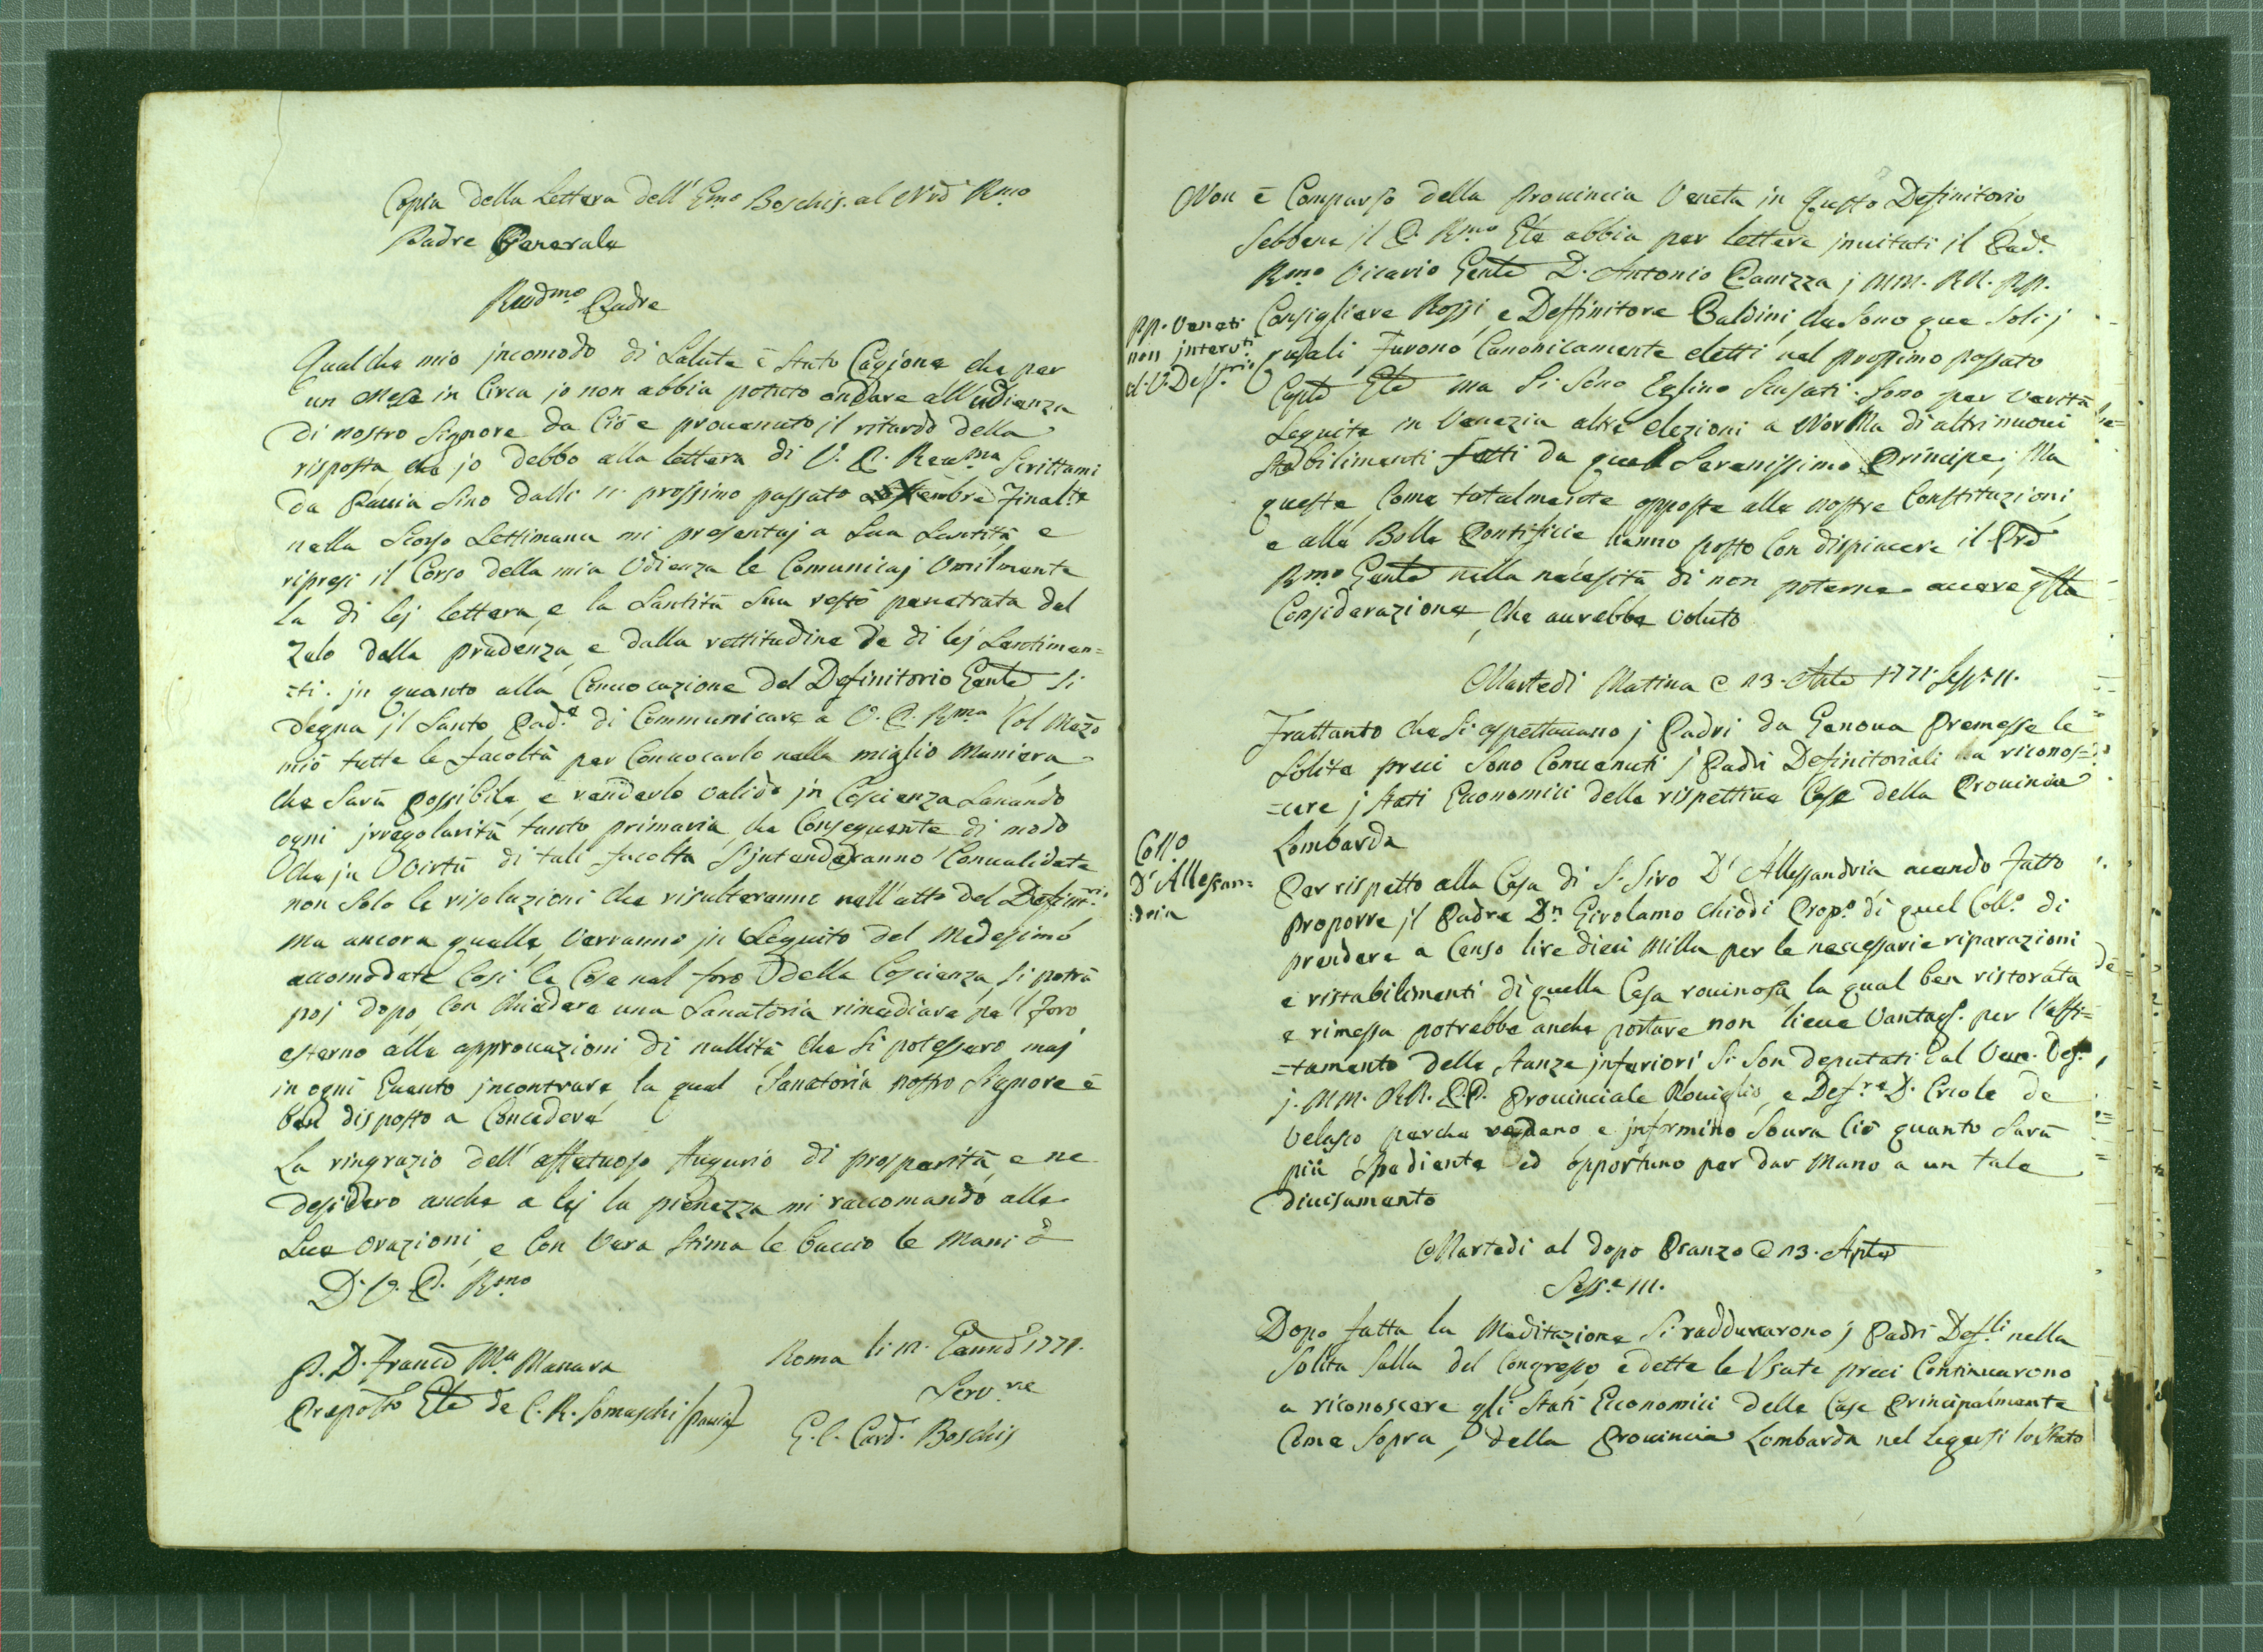 Copia della Lettera dell' Emo Boschis. al Nrõ Rmo
Padre Generale
Revdmo Padre
Qualche mio jncomodo di Salute è stato Cagione che per
un Mese in Circa jo non abbia potuto andare all'udienza
di nostro Signore da Ciò e prouenuto il ritardo della
risposta che jo debbo alla lettera di V. P. Reuma Scrittami
da Pauia sino dalli 11. prossimo passato Finalte
nella Scorsa Settimana mi presentaj a Sua Santità e
ripresi il Corso della mia Udienza le Comunicaj Umilmente
la di lej lettera, e la Santità Sua restò penetrata dal
Zelo dalla prudenza e dalla rettitudine de di lej Sentimen=
=ti. jn quanto alla Conuocazione del Definitorio Genle si
degna jl Santo Pade di Communicare a V. P. Rma Col Mezo
mio tutte le facoltà per Conuocarlo nella miglio Maniera
che Sarà possibile, e renderlo valido jn Coscienza Sanando
ogni jrregolarità tanto primaria che Conseguente di modo
che jn Virtù di tali facoltà S'jntenderanno Conualidate
non Solo le risoluzioni che risulteranno nell'atto del Definitri.
Ma ancora quelle verranno jn Seguito del Medesimo
accomodate Così le Cose nel foro della Coscienza, si potrà
poj dopo con chiedere una Sanatoria rimediare pe'l Foro
esterno alle approuazioni di nullità che si potessero maj
in ogni Euento jncontrare la qual Sanatoria nostro Signore è
ben disposto a Concedere
La ringrazio dell'affetuoso Augurio di prosperità, e ne
desidero anche a lej la pienezza mi raccomando alle
Sue orazioni, e Con Vera stima le baccio le Mani
D. V. P. Rmo
Roma li 12. Genno 1771.
P. D. Franco Ma Manara
Serv.re
Preposto Gle de C. R. Somaschi (Pauia)
G. C. Card. Boschis
Non è Comparso della Prouincia Veneta in Questo Definitorio
Sebbene il P. Rmo Gle abbia per lettere jnuitati il Pade
Rmo Vicario Genle D. Antonio Panizza j MM. RR. PP.
PP. Veneti
non jnteruti
al V. Deftrio
Consigliere Rossi, e Deffinitore Baldini, che Sono que Soli j
quali furono Canonicamente eletti nel prossimo passato
Caplo Gle ma Si Sono Eglino Scusati. Sono per verità
Seguite in Venezia altre elezioni a Norma di altri nuoui
Stabilimenti fatti da quel Serenissimo Principe; Ma
queste, Come totalmente opposte alle nostre Constituzioni,
e alle Bolle Pontificie hanno posto Con dispiacere il Prd
Rmo Genle nella necessità di non poterne auere qsta
Considerazione, che aurebbe voluto
Martedi Mattina @ 13. Aple 1771. Sesse 11.
Frattanto che si aspettauano j Padri da Genoua premesse le
Solite preci Sono Conuenuti j Padri Definitoriali a riconos=
=cere j stati Economici delle rispettiue Case della Prouincia
Lombarda
Collo
D'Allessan=
=dria
Per rispetto alla Casa di S. Siro D'Allessandria auendo fatto
proporre jl Padre Dn Girolamo Chiodi Propo di quel Collo di
prendere a Censo lire dieci Milla per le necessarie riparazioni
e ristabilimenti di quella Casa rouinosa la qual ben ristorata
e rimessa potrebbe anche portare non lieue Vantagg. per l'affi=
=tamento delle stanze jnferiori Si Son deputati dal Ven. Def.
j. MM. RR. P.P. Prouinciale Rouiglio, e Defre D. Ercole de
Velasco perche vedano e jnformino Soura Ciò quanto Sarà
più Spediente ed opportuno per dar Mano a un tale
diuisamento
Martedi al dopo Pranzo @ 13. Aple
Sesse 111.
Dopo fatta la Meditazione Si raddunarono j Padri Defli nella
Solita Salla del Congresso e dette le Usate preci Continuarono
a riconoscere gli Stati Economici delle Case Principalmente
Come Sopra, della Prouincia Lombarda nel leggersi lo Stato